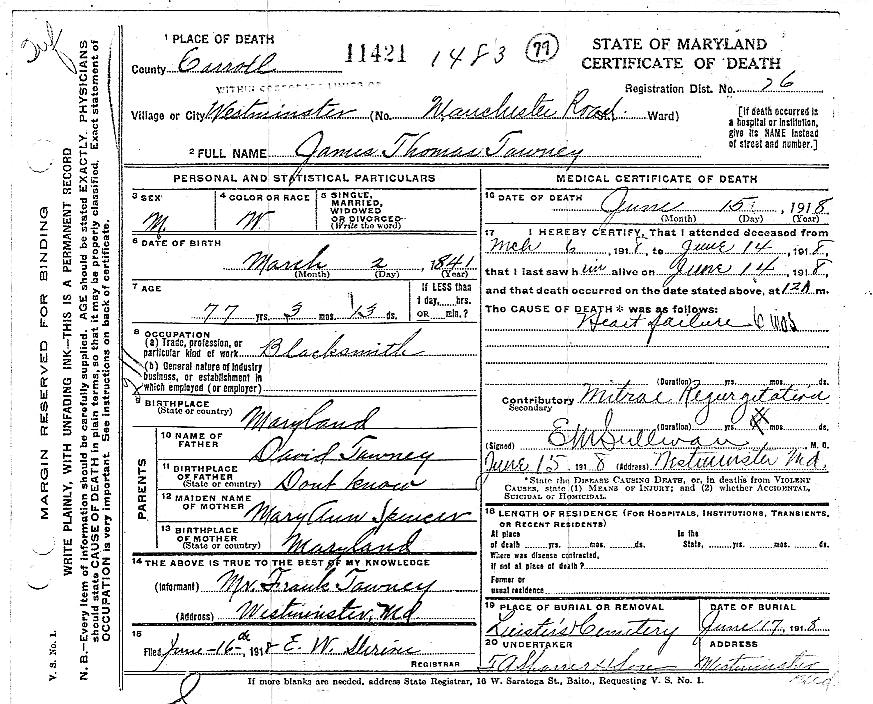 1 PLACE OF DEATH
County Carroll
11421 1483 77
STATE OF MARYLAND
CERTIFICATE OF DEATH
Registration Dist. No. 26
Village or City Westminster (No. Manchester Road. Ward)
[If death occurred in
a hospital or institution,
give its NAME instead
of street and number.]
2 FULL NAME James Thomas Tawney
PERSONAL AND STATISTICAL PARTICULARS
3 SEX
M.
4 COLOR OR RACE
W
5 SINGLE,
MARRIED,
WIDOWED
OR DIVORCED
(Write the word)
6 DATE OF BIRTH
March 2, 1841
(Month) (Day) (Year)
7 AGE
77 yrs. 3 mos. 13 ds.
If LESS than
1 day, hrs.
OR min.?
8 OCCUPATION
(a) Trade, profession, or
particular kind of work Blacksmith
(b) General nature of industry
business, or establishment in
which employed (or employer)
9 BIRTHPLACE
(State or country) Maryland
PARENTS
10 NAME OF
FATHER David Tawney
11 BIRTHPLACE
OF FATHER
(State or country) Dont know
12 MAIDEN NAME
OF MOTHER Mary Ann Spencer
13 BIRTHPLACE
OF MOTHER
(State or country) Maryland
14 THE ABOVE IS TRUE TO THE BEST OF MY KNOWLEDGE
(Informant) Mr. Frank Tawney
(Address) Westminster, Md
15
Filed June-16th, 1918 E. W.
REGISTRAR
MEDICAL CERTIFICATE OF DEATH
16 DATE OF DEATH
June 15, 1918
(Month) (Day) (Year)
17 I HEREBY CERTIFY, That I attended deceased from
Mch 6, 1918, to June 14, 1918,
that I last saw him alive on June 14, 1918,
and that death occurred on the date stated above, at 12A m.
The CAUSE OF DEATH* was as follows:
Heart failure 6 mos
(Duration) yrs. mos. ds.
Contributory Mitral Regurgitation
Secondary
(Duration) yrs. mos. ds.
(Signed) E M Sullivan M. D.
June 15 1918 (Address) Westminster Md.
*State the DISEASE CAUSING DEATH, or, in deaths from VIOLENT
CAUSES, state (1) MEANS OF INJURY; and (2) whether ACCIDENTAL,
SUICIDAL OR HOMICIDAL.
18 LENGTH OF RESIDENCE (FOR HOSPITALS, INSTITUTIONS, TRANSIENTS,
OR RECENT RESIDENTS)
At place In the
of death yrs. mos. ds. State, yrs. mos. ds.
Where was disease contracted,
if not at place of death?
Former or
usual residence
19 PLACE OF BURIAL OR REMOVAL
Leister's Cemetery
DATE OF BURIAL
June 17, 1918
20 UNDERTAKER
& Son
ADDRESS
Westminster
Md
If more blanks are needed, address State Registrar, 16 W. Saratoga St., Balto., Requesting V. S. No. 1.
V. S. No. 1.
MARGIN RESERVED FOR BINDING
WRITE PLAINLY, WITH UNFADING INK—THIS IS A PERMANENT RECORD
N. B.—Every item of information should be carefully supplied. AGE should be stated EXACTLY. PHYSICIANS
should state CAUSE OF DEATH in plain terms, so that it may be properly classified. Exact statement of
OCCUPATION is very important. See instructions on back of certificate.